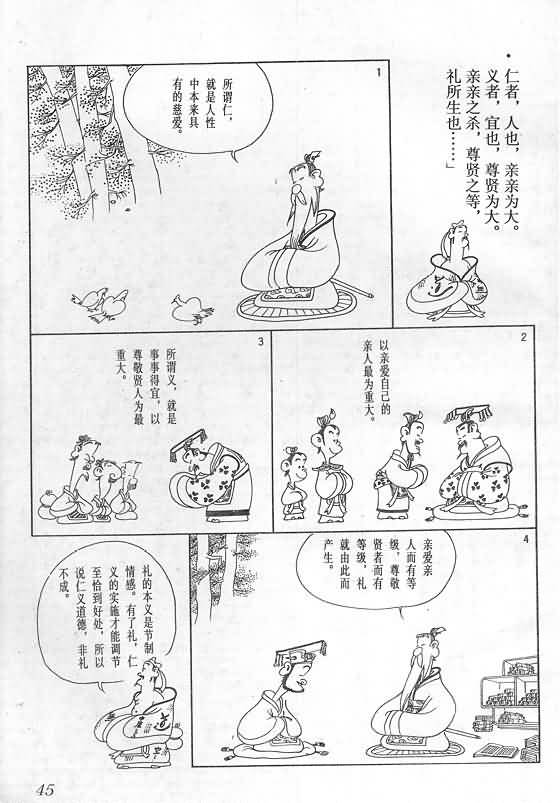 仁者，人也，亲亲为大。
义者，宜也，尊贤为大。
亲亲之杀，尊贤之等，
礼所生也……」
1
所谓仁，
就是人性
中本来具
有的慈爱。
2
以亲爱自己的
亲人最为重大。
3
所谓义，就是
事事得宜，以
尊敬贤人为最
重大。
4
亲爱亲
人而有等
级，尊敬
贤者而有
等级，礼
就由此而
产生。
礼的本义是节制
情感。有了礼，仁
义的实施才能调节
至恰到好处，所以
说仁义道德，非礼
不成。
道
45